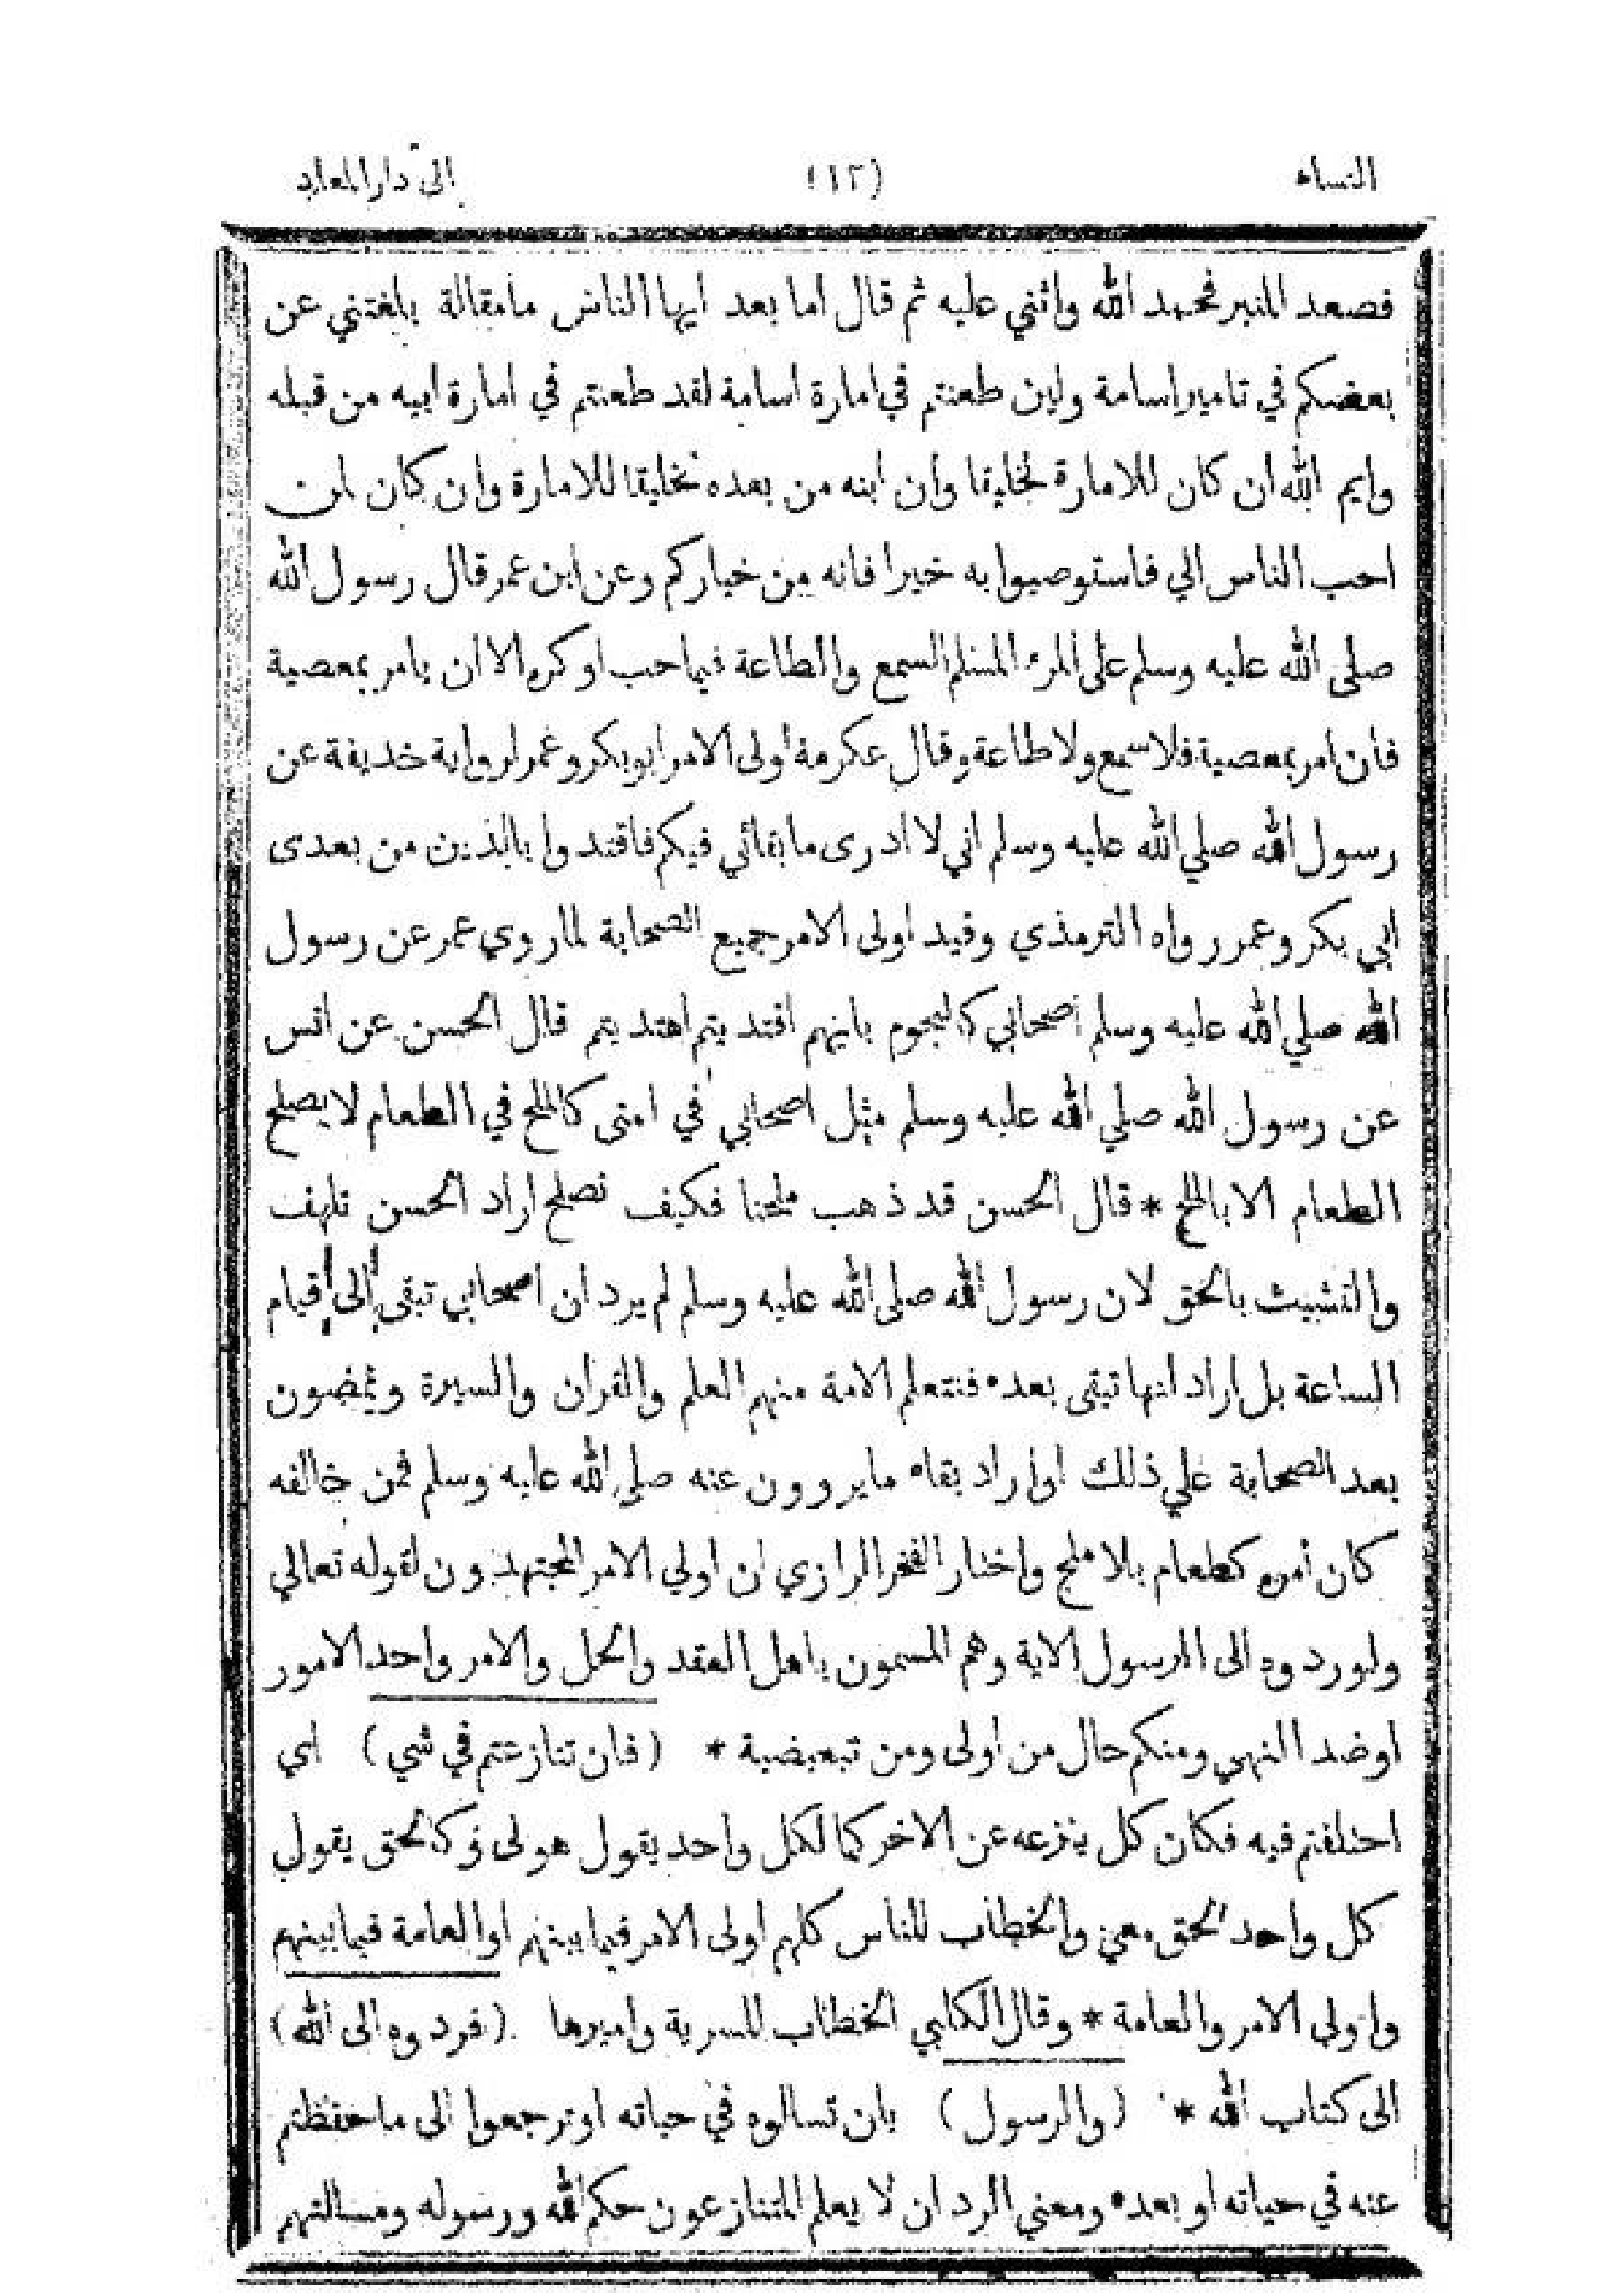 النساء (١٢) الى دار المعاد
فصعد المنبر فحمد الله واثني عليه ثم قال اما بعد ايها الناس ما مقالة بلغتني عن
بعضكم في تامير اسامة ولين طعنتم في امارة اسامة لقد طعنتم في امارة ابيه من قبله
وايم الله ان كان للامارة لخليقا وان ابنه من بعده لخليقا للامارة وان كان لمن
احب الناس الي فاستوصوا به خيرا فانه من خياركم وعن ابن عمر قال رسول الله
صلى الله عليه وسلم على المرء المسلم السمع والطاعة فيما احب او كره الا ان يامر بمعصية
فان امر بمعصية فلا سمع ولا طاعة وقال عكرمة اولى الامر ابو بكر وعمر لرواية خديفة عن
رسول الله صلي الله عليه وسلم اني لا ادرى ما بقائي فيكم فاقتدوا بالذين من بعدى
ابي بكر وعمر رواه الترمذي وقيد اولى الامر جميع الصحابة لما روي عمر عن رسول
الله صلي الله عليه وسلم اصحابي كالنجوم بايهم اقتديتم اهتديتم قال الحسن عن انس
عن رسول الله صلي الله عليه وسلم مثل اصحابي في امتى كالملح في الطعام لا يصلح
الطعام الا بالملح * قال الحسن قد ذهب ملحنا فكيف نصلح اراد الحسن تلهف
والتشبيث بالحق لان رسول الله صلى الله عليه وسلم لم يرد ان اصحابي تبقى إلى قيام
الساعة بل اراد انها تبقى بعده فتتعلم الامة منهم العلم والقران والسيرة ويمضون
بعد الصحابة علي ذلك او اراد بقاء ما يروون عنه صلى الله عليه وسلم فمن خالفه
كان أمره كطعام بلا ملح واختار الفخر الرازي ان اولي الامر المجتهدون لقوله تعالي
ولو ردوه الى الرسول الاية وهم المسمون باهل العقد والحل والامر واحد الامور
او ضد النهي ومنكم حال من اولى ومن تبعيضية * (فان تنازعتم في شي) اي
اختلفتم فيه فكان كل ينزعه عن الاخر كما لكل واحد يقول هو لى وكالحق يقول
كل واحد الحق معي والخطاب للناس كلهم اولى الامر فيما بينهم او العامة فيما بينهم
واولى الامر والعامة * وقال الكلبي الخطاب للسرية واميرها (فردوه الى الله)
الى كتاب الله * (والرسول) بان تسالوه في حياته او ترجعوا الى ما حفظتم
عنه في حياته او بعده ومعني الرد ان لا يعلم المتنازعون حكم الله ورسوله ومسالتهم